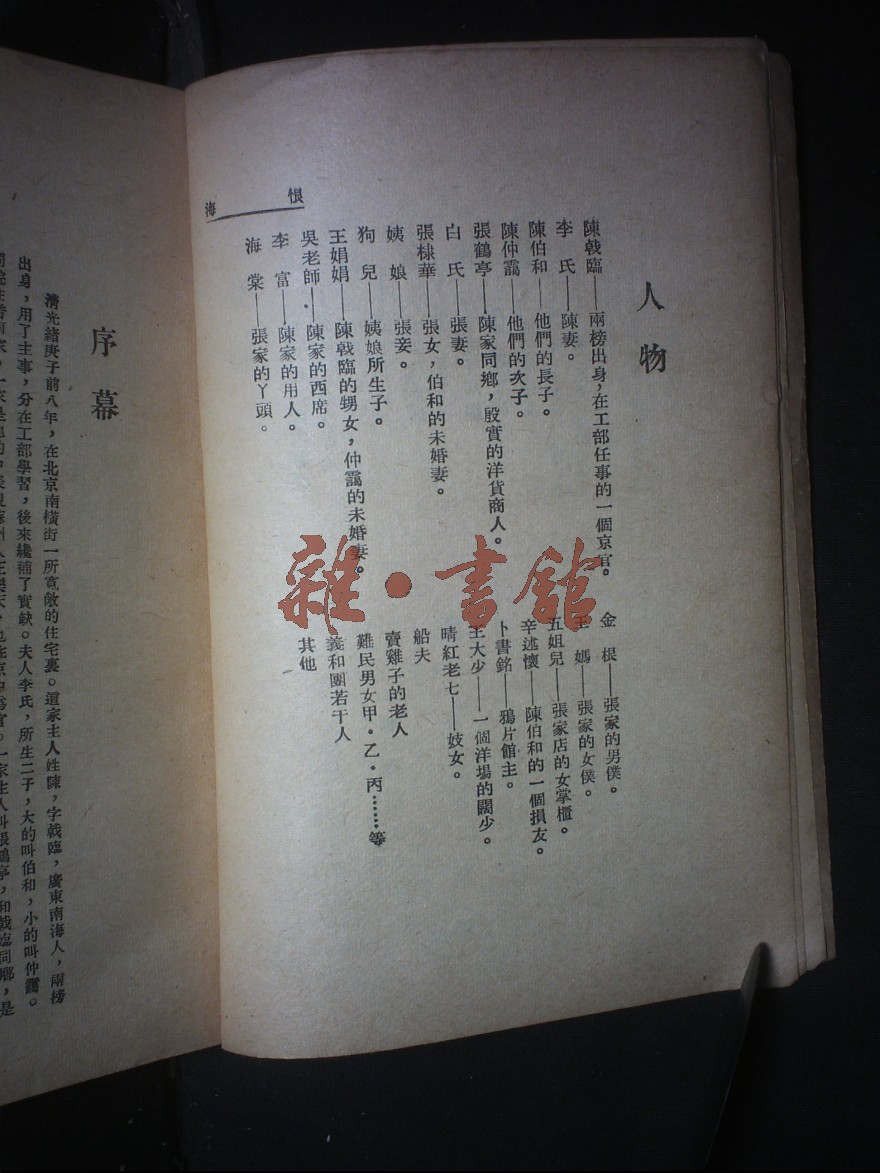 恨海
人物
陳戟臨——兩榜出身，在工部任事的一個京官。
李氏——陳妻。
陳伯和——他們的長子。
陳仲靄——他們的次子。
張鶴亭——陳家同鄉，殷實的洋貨商人。
白氏——張妻。
張棣華——張女，伯和的未婚妻。
姨娘——張妾。
狗兒——姨娘所生子。
王娟娟——陳戟臨的甥女，仲靄的未婚妻。
吳老師——陳家的西席。
李富——陳家的用人。
海棠——張家的丫頭。
金根——張家的男僕。
王媽——張家的女僕。
五姐兒——張家店的女掌櫃。
辛述懷——陳伯和的一個損友。
卜書銘——鴉片館主。
王大少——一個洋場的闊少。
晴紅老七——妓女。
船夫
賣雞子的老人
難民男女甲·乙·丙……等
義和團若干人
其他
雜·書館
序幕
清光緒庚子前八年，在北京南橫街一所寬敞的住宅裏。這家主人姓陳，字戟臨，廣東南海人，兩榜
出身，用了主事，分在工部學習，後來纔補了實缺。夫人李氏，所生二子，大的叫伯和，小的叫仲靄。
一家主人叫張鶴亭，和戟臨同鄉，是